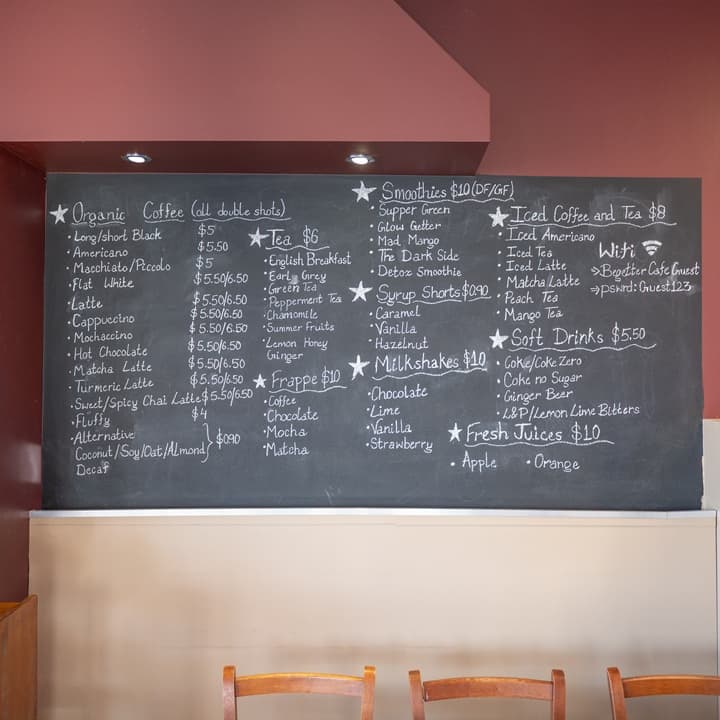 Organic Coffee (all double shots)
Long/short Black $5
Americano $5.50
Macchiato/Piccolo $5
Flat White $5.50/6.50
Latte $5.50/6.50
Cappuccino $5.50/6.50
Mochaccino $5.50/6.50
Hot Chocolate $5.50/6.50
Matcha Latte $5.50/6.50
Turmeric Latte $5.50/6.50
Sweet/Spicy Chai Latte $5.50/6.50
Fluffy $4
Alternative
Coconut/Soy/Oat/Almond $0.90
Decaf
Tea $6
English Breakfast
Earl Grey
Green Tea
Peppermint Tea
Chamomile
Summer Fruits
Lemon Honey
Ginger
Frappe $10
Coffee
Chocolate
Mocha
Matcha
Smoothies $10 (DF/GF)
Supper Green
Glow Getter
Mad Mango
The Dark Side
Detox Smoothie
Syrup Shorts $0.90
Caramel
Vanilla
Hazelnut
Milkshakes $10
Chocolate
Lime
Vanilla
Strawberry
Iced Coffee and Tea $8
Iced Americano
Iced Tea
Iced Latte
Matcha Latte
Peach Tea
Mango Tea
Wifi
Begetter Cafe Guest
pswrd: Guest123
Soft Drinks $5.50
Coke/Coke Zero
Coke no Sugar
Ginger Beer
L&P/Lemon Lime Bitters
Fresh Juices $10
Apple Orange